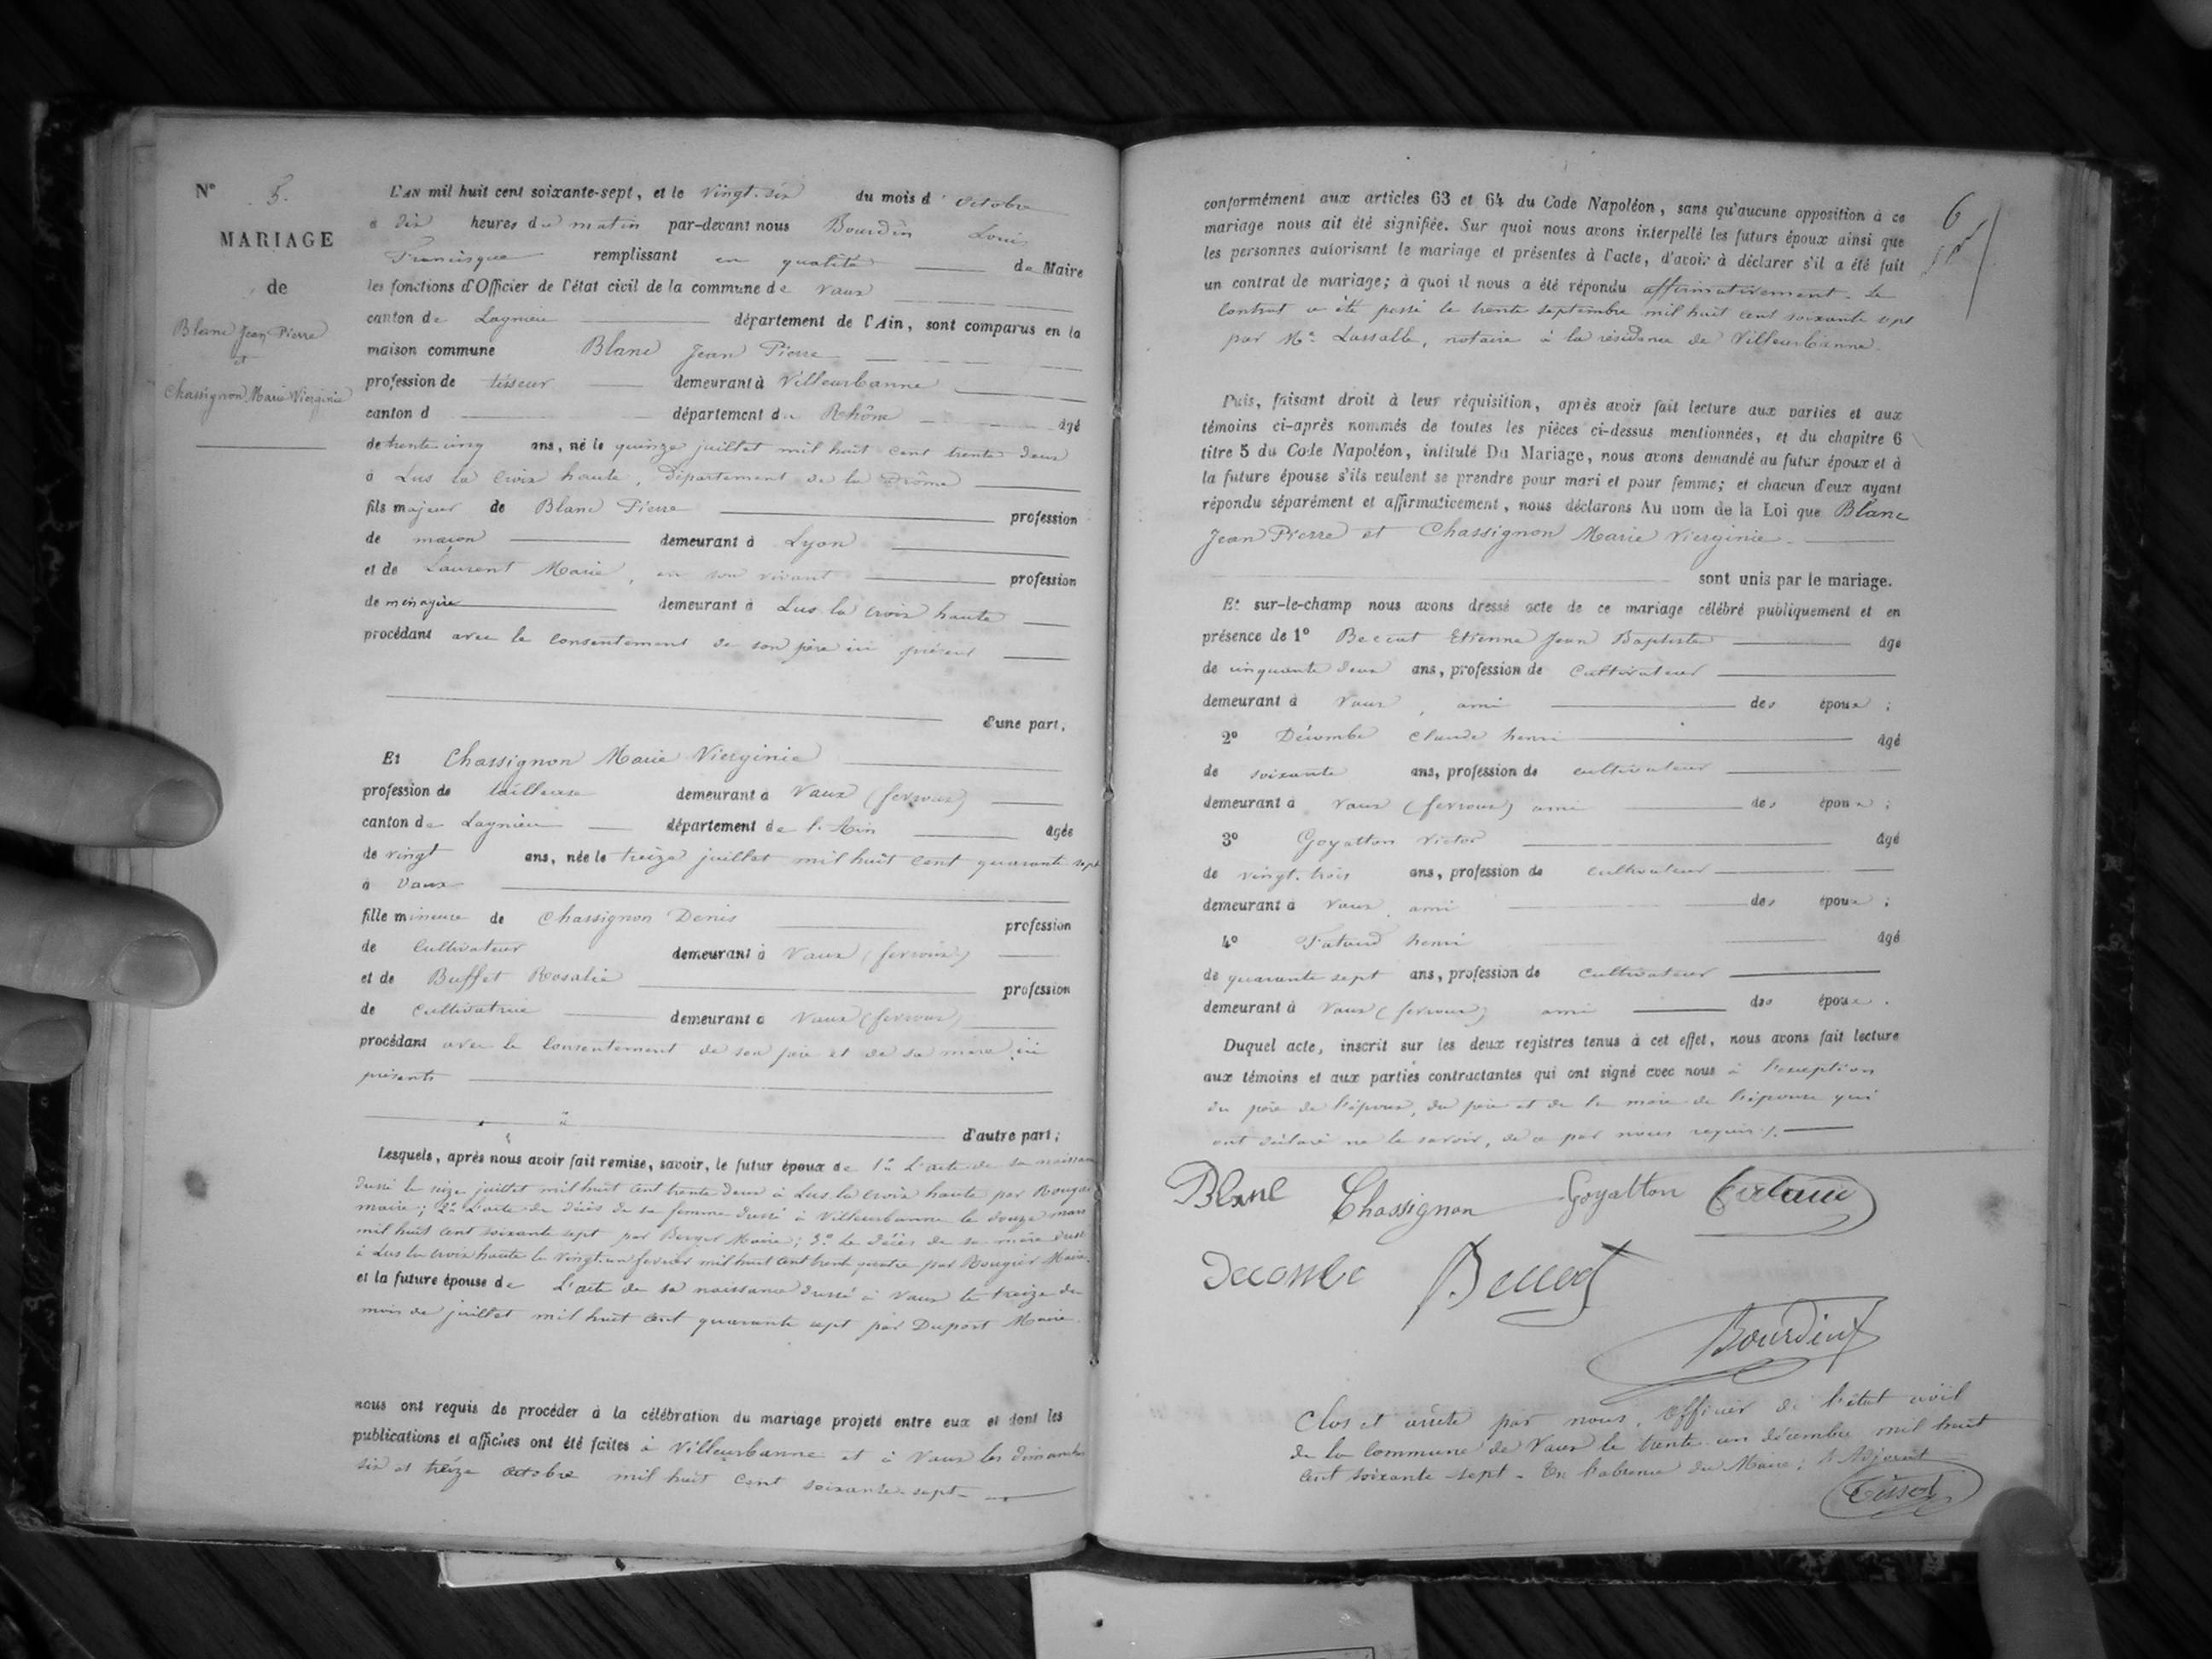 N° 5.
MARIAGE
de
Blanc Jean Pierre
et
Chassignon Marie Vierginie
L'AN mil huit cent soixante-sept, et le vingt-six du mois d'octobre
à dix heures du matin par-devant nous Bourdin Louis
Francisque remplissant en qualité de Maire
les fonctions d'Officier de l'état civil de la commune de Vaux
canton de Lagnieu département de l'Ain, sont comparus en la
maison commune Blanc Jean Pierre
profession de tisseur demeurant à Villeurbanne
canton d département du Rhône âgé
de trente-cinq ans, né le quinze juillet mil huit cent trente deux
à Lus la croix haute, département de la Drôme
fils majeur de Blanc Pierre profession
de maçon demeurant à Lyon
et de Laurent Marie, en son vivant profession
de ménagère demeurant à Lus la croix haute
procédant avec le consentement de son père ici présent
d'une part,
Et Chassignon Marie Vierginie
profession de tailleuse demeurant à Vaux (fevroux)
canton de Lagnieu département de l'Ain âgée
de vingt ans, née le treize juillet mil huit cent quarante sept
à Vaux
fille mineure de Chassignon Denis profession
de cultivateur demeurant à Vaux (fevroux)
et de Buffet Rosalie profession
de cultivatrice demeurant à Vaux (fevroux)
procédant avec le consentement de son père et de sa mère ici
présents
d'autre part;
Lesquels, après nous avoir fait remise, savoir, le futur époux de 1° L'acte de sa naissance
dressé le seize juillet mil huit cent trente deux à Lus la croix haute par Rougier
maire; 2° L'acte de décès de sa femme dressé à Villeurbanne le douze mars
mil huit cent soixante sept par Berger Maire; 3° Le décès de sa mère dressé
à Lus la croix haute le vingt un fevrier mil huit cent trente quatre par Rougier Maire
et la future épouse de L'acte de sa naissance dressé à Vaux le treize du
mois de juillet mil huit cent quarante sept par Duport Maire.
nous ont requis de procéder à la célébration du mariage projeté entre eux et dont les
publications et affiches ont été faites à Villeurbanne et à Vaux les dimanches
six et treize octobre mil huit cent soixante-sept
6
conformément aux articles 63 et 64 du Code Napoléon, sans qu'aucune opposition à ce
mariage nous ait été signifiée. Sur quoi nous avons interpellé les futurs époux ainsi que
les personnes autorisant le mariage et présentes à l'acte, d'avoir à déclarer s'il a été fait
un contrat de mariage; à quoi il nous a été répondu affirmativement. Le
contrat a été passé le trente septembre mil huit cent soixante sept
par Me Lassalle, notaire à la résidence de Villeurbanne.
Puis, faisant droit à leur réquisition, après avoir fait lecture aux parties et aux
témoins ci-après nommés de toutes les pièces ci-dessus mentionnées, et du chapitre 6
titre 5 du Code Napoléon, intitulé Du Mariage, nous avons demandé au futur époux et à
la future épouse s'ils veulent se prendre pour mari et pour femme; et chacun d'eux ayant
répondu séparément et affirmativement, nous déclarons Au nom de la Loi que Blanc
Jean Pierre et Chassignon Marie Vierginie
sont unis par le mariage.
Et sur-le-champ nous avons dressé acte de ce mariage célébré publiquement et en
présence de 1° Beccat Etienne Jean Baptiste âgé
de cinquante deux ans, profession de cultivateur
demeurant à Vaux, ami des époux;
2° Décombe Claude henri âgé
de soixante ans, profession de cultivateur
demeurant à Vaux (fevroux) ami des époux;
3° Goyatton Victor âgé
de vingt-trois ans, profession de cultivateur
demeurant à Vaux, ami des époux;
4° henri âgé
de quarante sept ans, profession de cultivateur
demeurant à Vaux (fevroux) ami des époux.
Duquel acte, inscrit sur les deux registres tenus à cet effet, nous avons fait lecture
aux témoins et aux parties contractantes qui ont signé avec nous à l'exception
du père de l'époux, du père et de la mère de l'épouse qui
ont déclaré ne le savoir, de ce par nous requis.
Blanc Chassignon Goyatton
Decombe Beccat
Bourdin
Clos et arrêté par nous, officier de l'état civil
de la commune de Vaux le trente un décembre mil huit
cent soixante-sept. En l'absence du Maire; l'Adjoint
Tissot